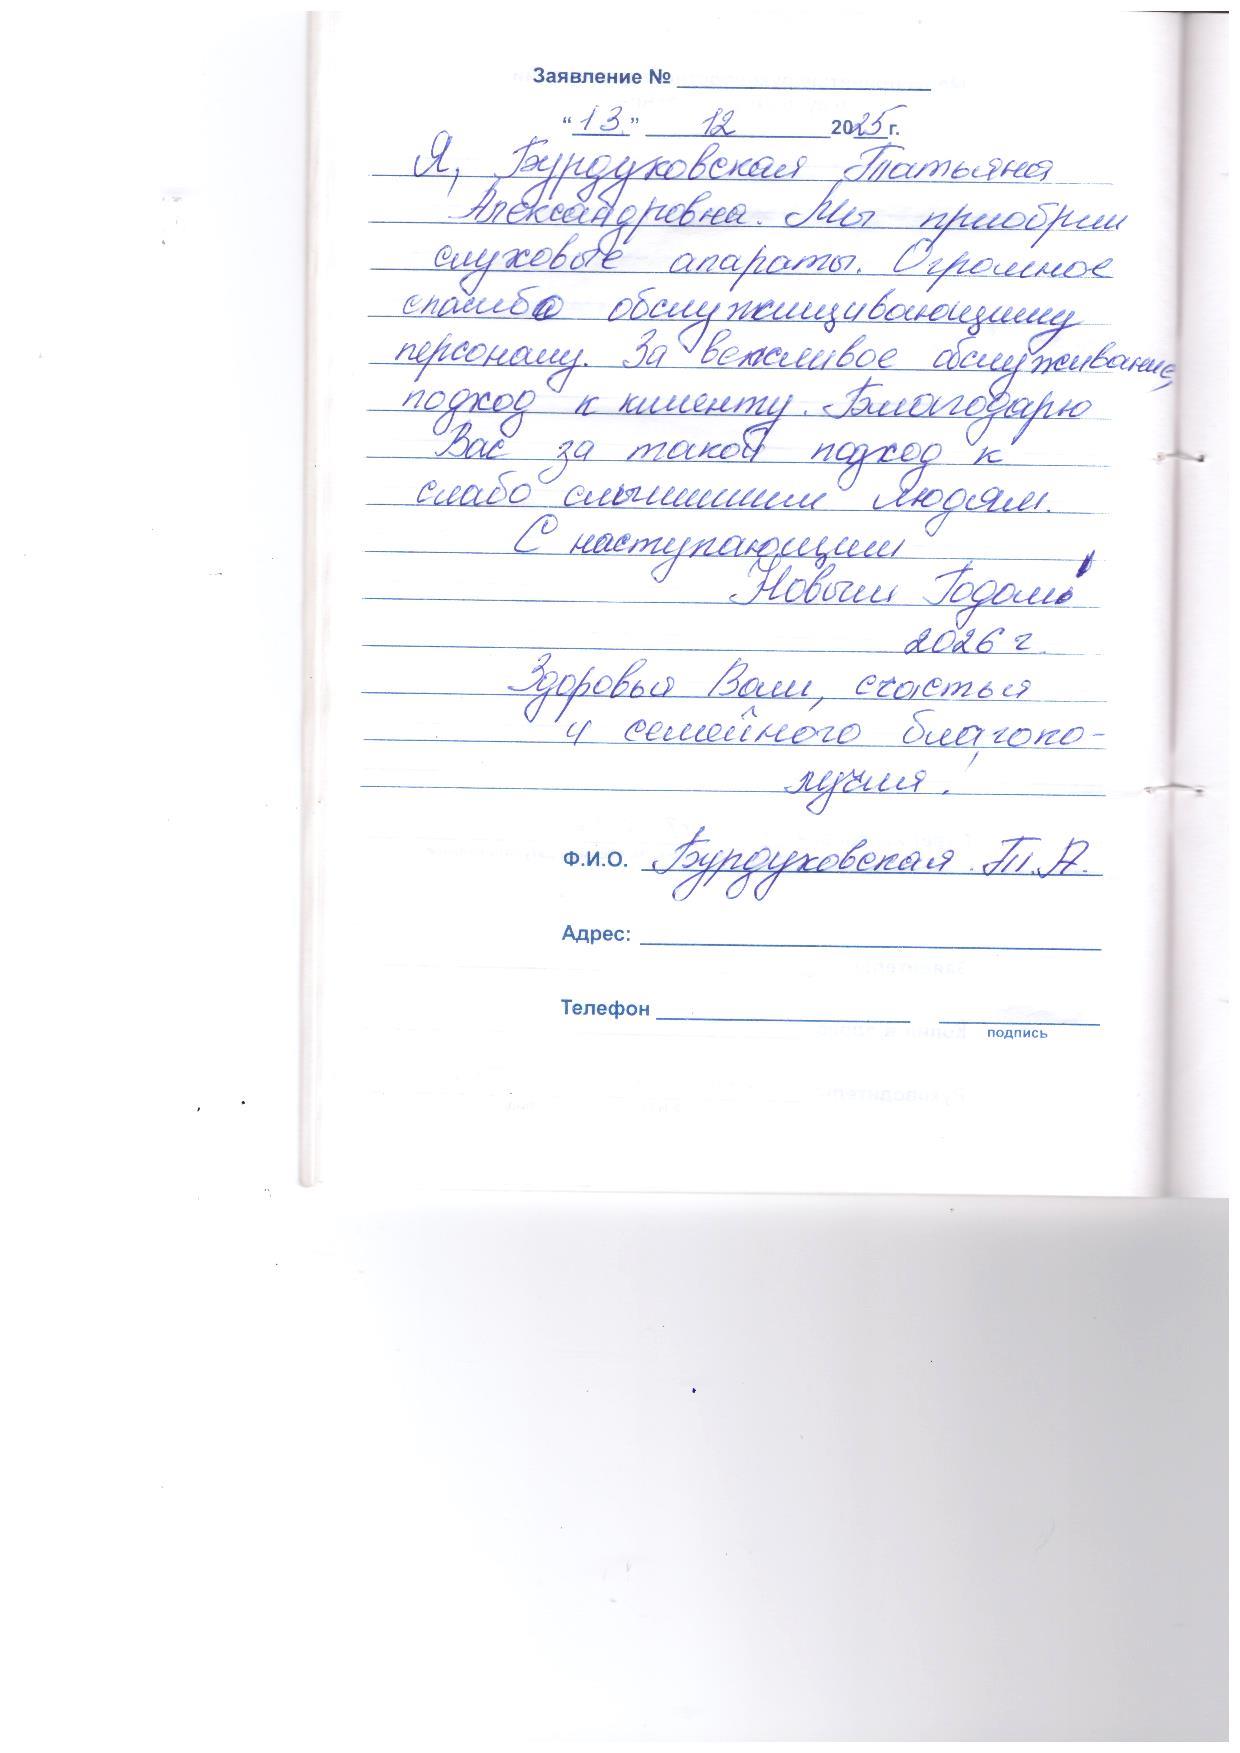 Заявление №
“ 13 ” 12 2025 г.
Я, Бурдуковская Татьяна
Александровна. Мы приобрли
слуховые апараты. Огромное
спасибо обслужищивающиму
персоналу. За вежливое обслуживание,
подход к клиенту. Благодарю
Вас за такой подход к
слабо слышишим людям.
С наступающим
Новым Годом!
2026 г.
Здоровья Вам, счастья
и семейного благопо-
лучия!
Ф.И.О. Бурдуковская Т.А.
Адрес:
Телефон
подпись